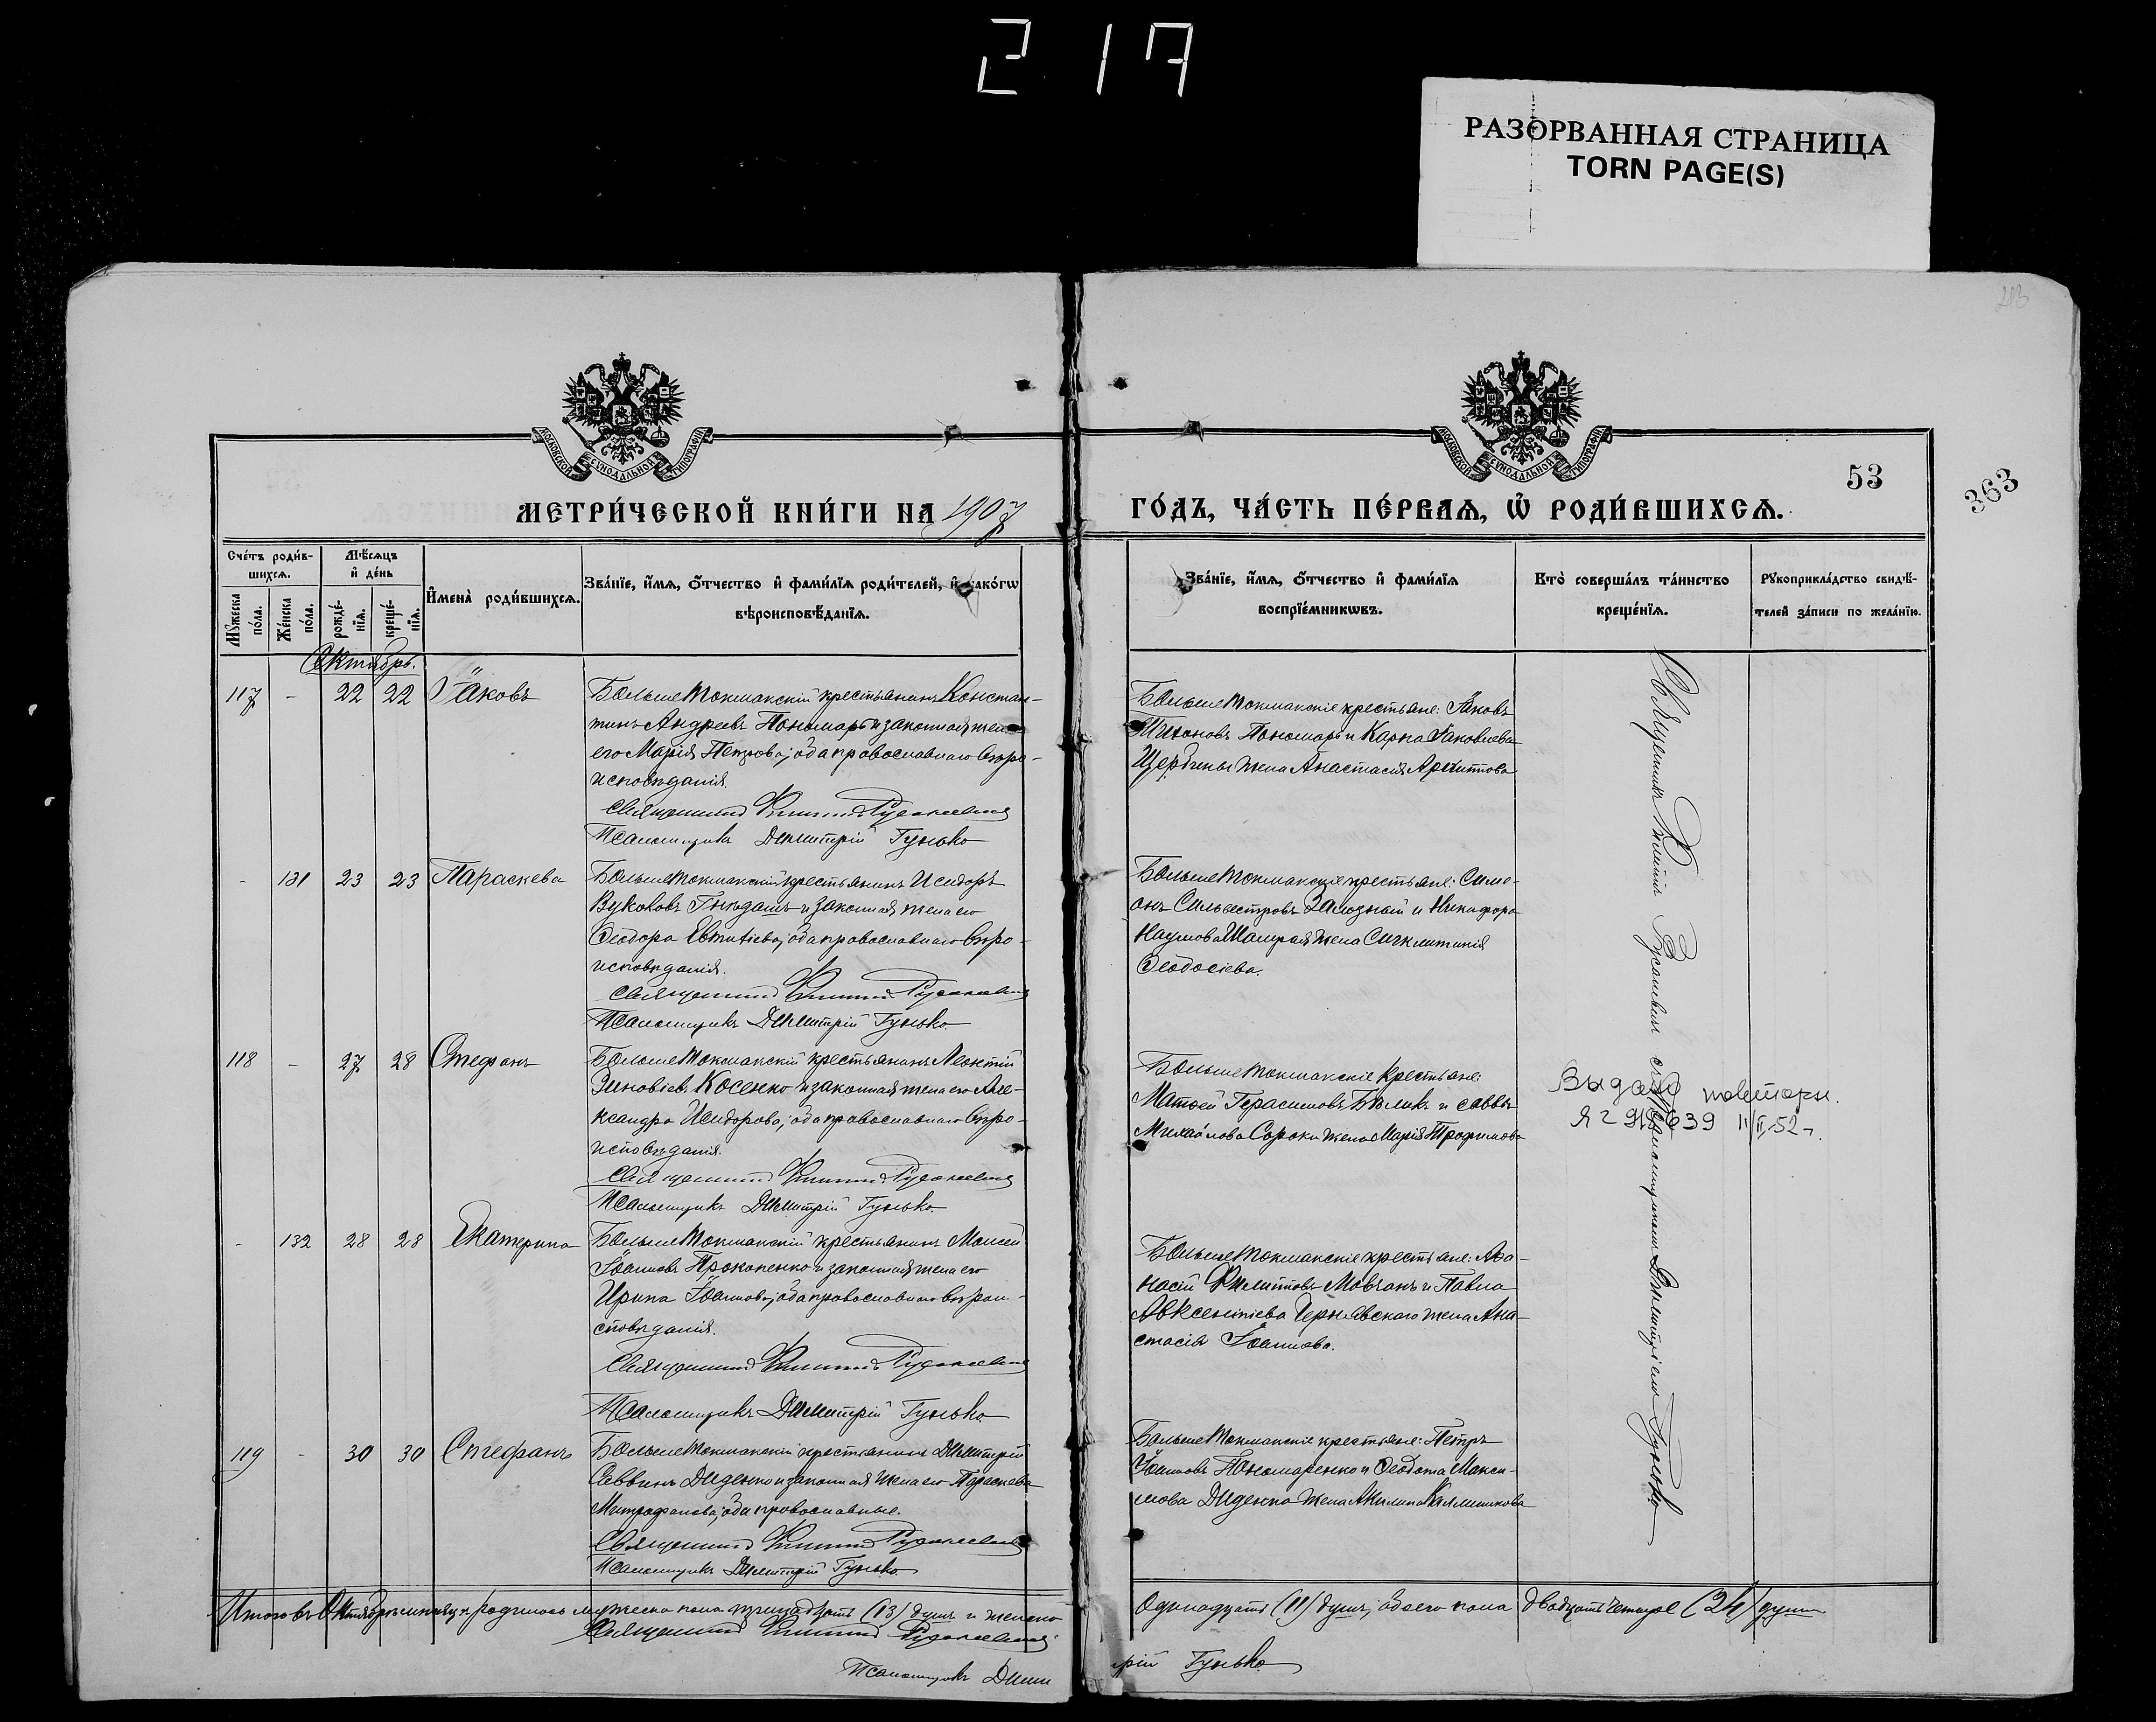 217
РАЗОРВАННАЯ СТРАНИЦА
TORN PAGE(S)
213
МОСКОВСКОЙ СУНОДАЛЬНОЙ ТИПОГРАФІИ
МОСКОВСКОЙ СУНОДАЛЬНОЙ ТИПОГРАФІИ
53
363
МЕТРИ́ЧЕСКОЙ КНИ́ГИ НА 1907
ГО́ДЪ, ЧА́СТЬ ПЕ́РВАѦ, Ѡ҆ РОДИ́ВШИХСѦ.
Сче́тъ роди́в-
шихсѧ.
Мѣ́сѧцъ
и҆ де́нь
Мꙋ́жеска
по́ла.
Же́нска
по́ла.
рожде́-
нїѧ.
креще́-
нїѧ.
И҆мена̀ роди́вшихсѧ.
Зва́нїе, и҆́мѧ, ѻ҆́тчество и҆ фами́лїѧ роди́телей, и҆ како́гѡ
вѣроисповѣ́данїѧ.
Зва́нїе, и҆́мѧ, ѻ҆́тчество и҆ фами́лїѧ
воспрїе́мникѡвъ.
Кто̀ соверша́лъ та́инство
креще́нїѧ.
Рꙋкоприкла́дство свидѣ́-
телей за́писи по жела́нїю.
Октябрь.
117 - 22 22 Іаковъ
Больше Токмакскій крестьянинъ Констан-
тинъ Андреевъ Пономарь и законная жена
его Марія Петрова; оба православнаго вѣро-
исповѣданія.
Священникъ Филиппъ
Псаломщикъ Димитрій Гунько
Больше Токмакскіе крестьяне: Іаковъ
Тихоновъ Пономарь и Карпа Іаковлева
Щербины жена Анастасія Архиппова
- 131 23 23 Параскева
Больше Токмакскій крестьянинъ Исидоръ
Вуколовъ Гнѣдашъ и законная жена его
Ѳеодора Евтихіева; оба православнаго вѣро-
исповѣданія.
Священникъ Филиппъ
Псаломщикъ Димитрій Гунько
Больше Токмакскіе крестьяне: Симе-
онъ Сильвестровъ Залозный и Никифора
Наумова жена Синклитикія
Ѳеодосіева.
118 - 27 28 Стефанъ
Больше Токмакскій крестьянинъ Леонтій
Зиновіевъ Косенко и законная жена его Але-
ксандра Исидорова; оба православнаго вѣро-
исповѣданія.
Священникъ Филиппъ
Псаломщикъ Димитрій Гунько
Больше Токмакскіе крестьяне:
Матѳей Герасимовъ Бѣликъ и Саввы
Михайлова Сороки жена Марія Трофимова
Выдано повторн.
ЯГ 918639 11/II 52 г.
- 132 28 28 Екатерина
Больше Токмакскій крестьянинъ Моисей
Іоанновъ Прокопенко и законная жена его
Ирина Іоаннова; оба православнаго вѣрои-
сповѣданія.
Священникъ Филиппъ
Псаломщикъ Димитрій Гунько
Больше Токмакскіе крестьяне: Аѳа-
насій Филипповъ Мовчанъ и Павла
Авксентіева Чернявскаго жена Ана-
стасія Іоаннова.
119 - 30 30 Стефанъ
Больше Токмакскій крестьянинъ Димитрій
Саввинъ Диденко и законная жена его Параскева
Митрофанова; оба православные.
Священникъ Филиппъ
Псаломщикъ Димитрій Гунько
Больше Токмакскіе крестьяне: Петръ
Іоанновъ Пономаренко и Ѳеодота Макси-
мова Диденка жена Акилина
Священникъ Филиппъ съ псаломщикомъ Димитріемъ Гунько
Итого въ Октябрѣ мѣсяцѣ родилось мужеска пола тринадцать (13) душъ и женска
одинадцать (11) душъ; обоего пола двадцать четыре (24) души
Священникъ Филиппъ
Псаломщикъ Димит
рій Гунько